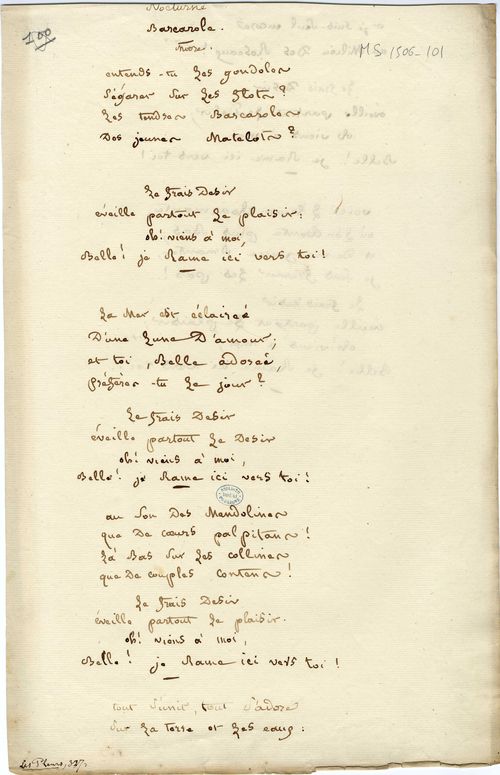 Nocturne
100
Barcarole.
MS 1506-101
entends-tu Les gondoles
S'égarer Sur Les flots?
Les tendres Barcaroles
Des jeunes Matelots?
Le frais Desir
éveille partout Le plaisir:
oh! viens à moi,
Belle! je Rame ici vers toi!
La Mer est éclairée
D'une Lune D'amour;
et toi, Belle adorée,
préfères-tu Le jour?
Le frais Desir
éveille partout Le Desir
oh! viens à moi,
Belle! je Rame ici vers toi!
au Son Des Mandolines
que De cœurs palpitans!
Là Bas Sur Les collines
que De couples contens!
Le frais Desir
éveille partout Le plaisir.
oh! viens à moi,
Belle! je Rame ici vers toi!
tout S'unit, tout S'adore
Sur La terre et Les eaux: